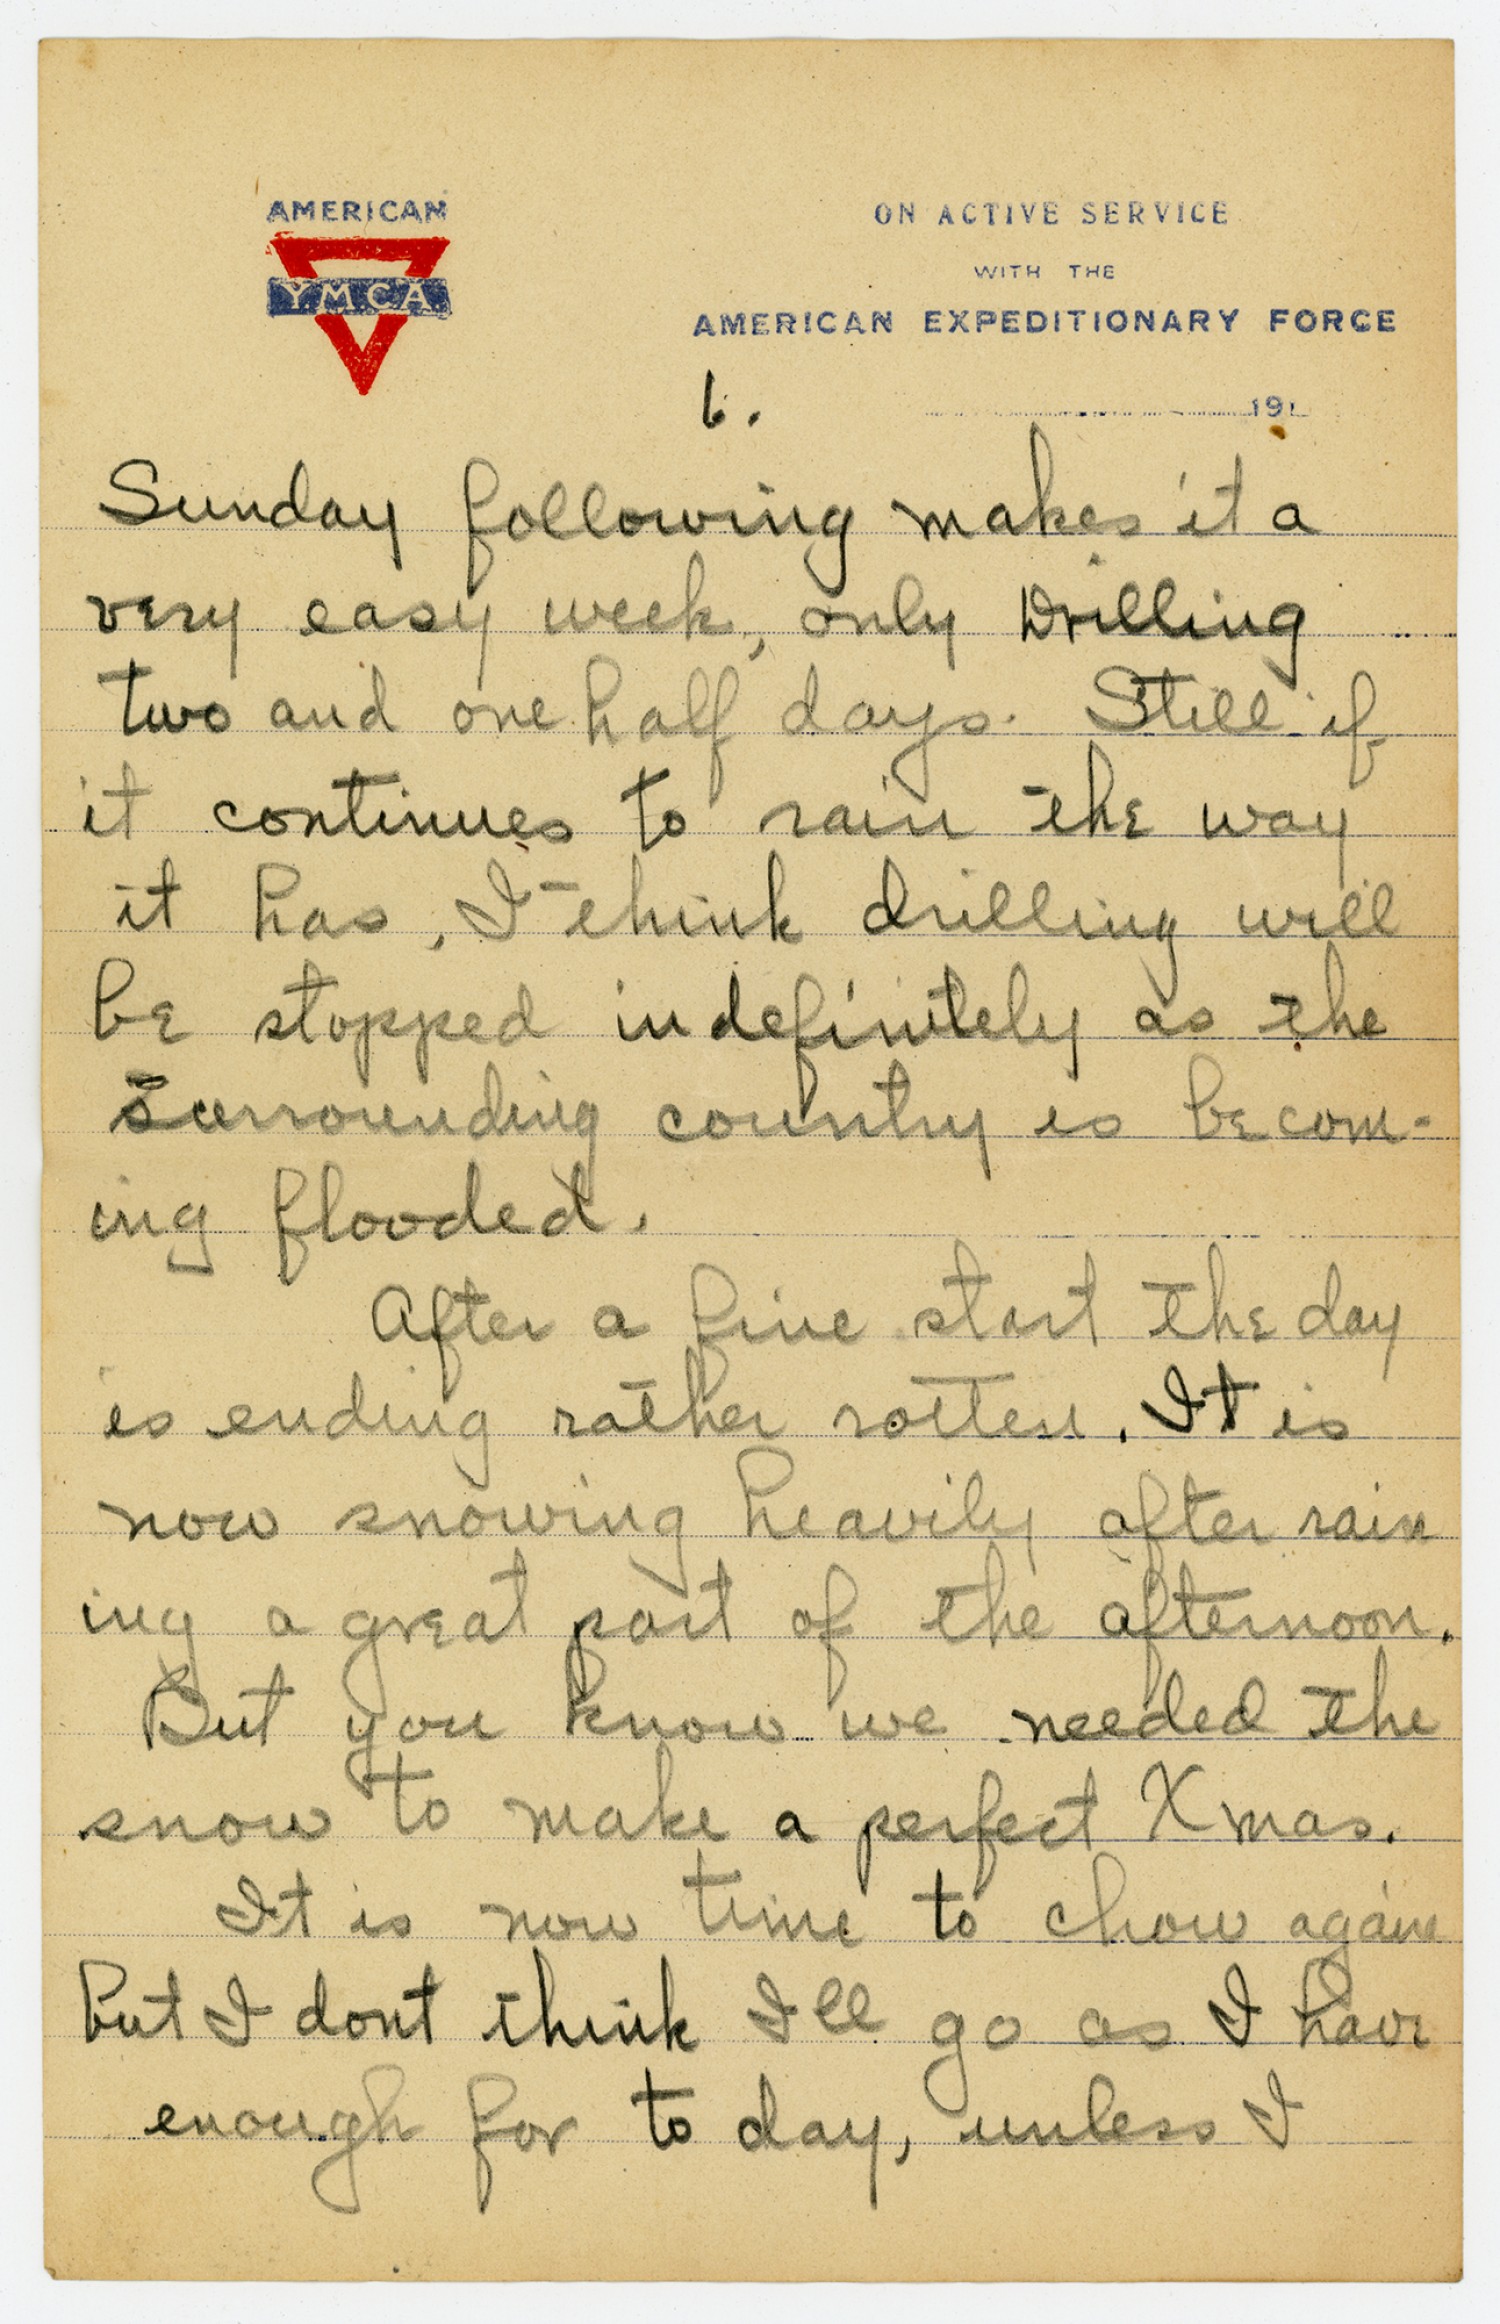 AMERICAN
YMCA
ON ACTIVE SERVICE
WITH THE
AMERICAN EXPEDITIONARY FORCE
191
6.
Sunday following makes it a
very easy week, only Drilling
two and one half days. Still if
it continues to rain the way
it has, I think drilling will
be stopped indefinitely as the
surrounding country is becom-
ing flooded.
After a fine start the day
is ending rather rotten. It is
now snowing heavily after rain
ing a great part of the afternoon.
But you know we needed the
snow to make a perfect Xmas.
It is now time to chow again
but I dont think I'll go as I have
enough for to day, unless I